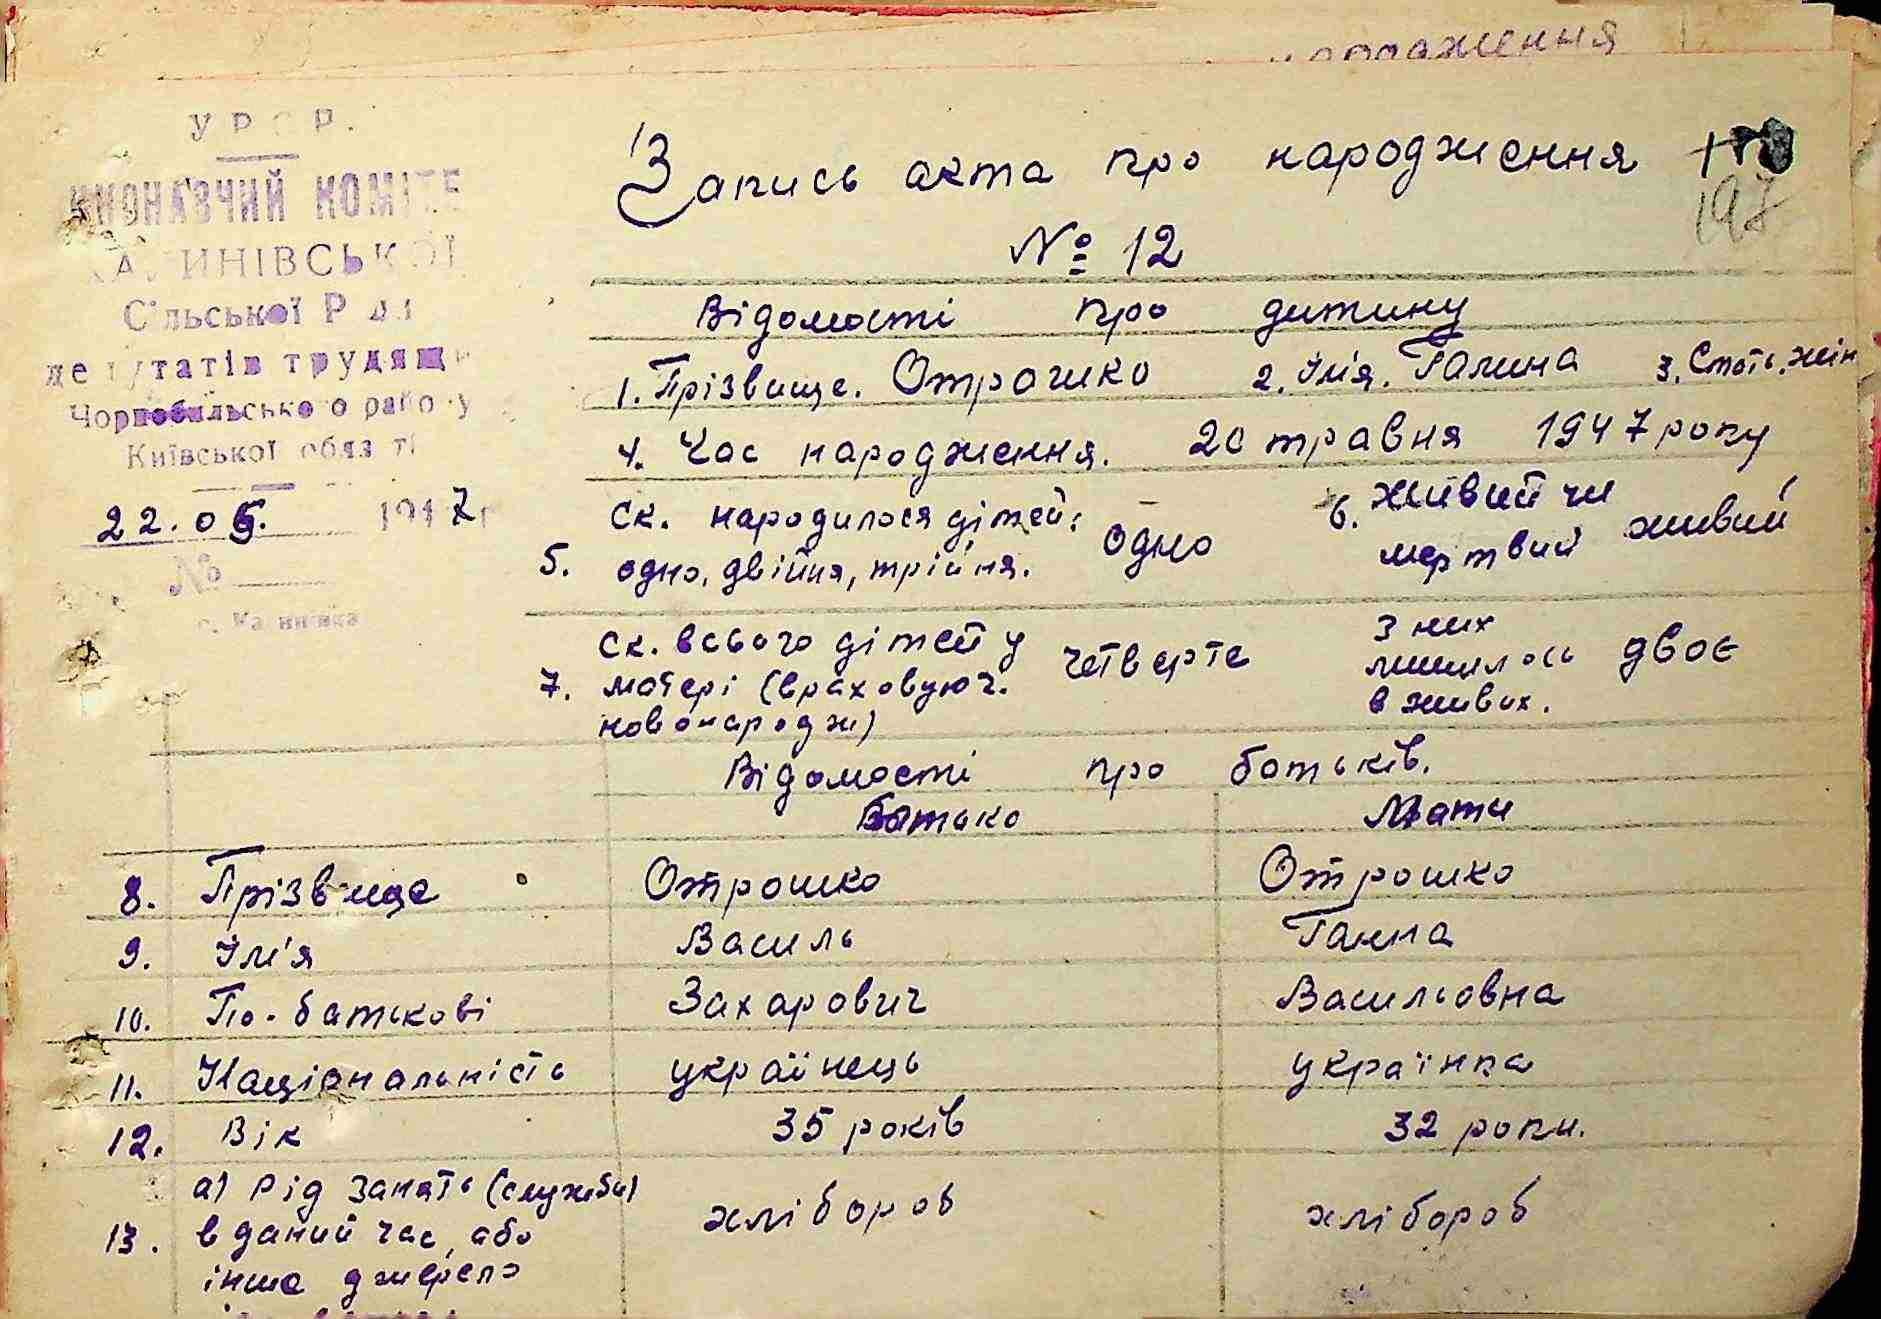 народження
УРСР.
ВИКОНАВЧИЙ КОМІТЕ
КАЛИНІВСЬКОЇ
Сільської Ради
депутатів трудящи
Чорнобильського району
Київської області
22.05. 1947 р
№
с. Калинівка
Запись акта про народження
197
№ 12
Відомості про дитину
1. Прізвище. Отрошко 2. Ім'я. Галина 3. Стать. жін
4. Час народження. 20 травня 1947 року
5. ск. народилося дітей: одно, двійня, трійня. одно 6. живий чи мертвий живий
7. ск. всього дітей у матері (враховуюч. новонародж) четверте з них лишилось в живих. двоє
Відомості про батьків.
Батько Мати
8. Прізвище Отрошко Отрошко
9. Ім'я Василь Ганна
10. По-батькові Захарович Васильовна
11. Національність українець українка
12. Вік 35 років 32 роки.
13. а) Рід занять (служби) в даний час, або інше джерело хлібороб хлібороб